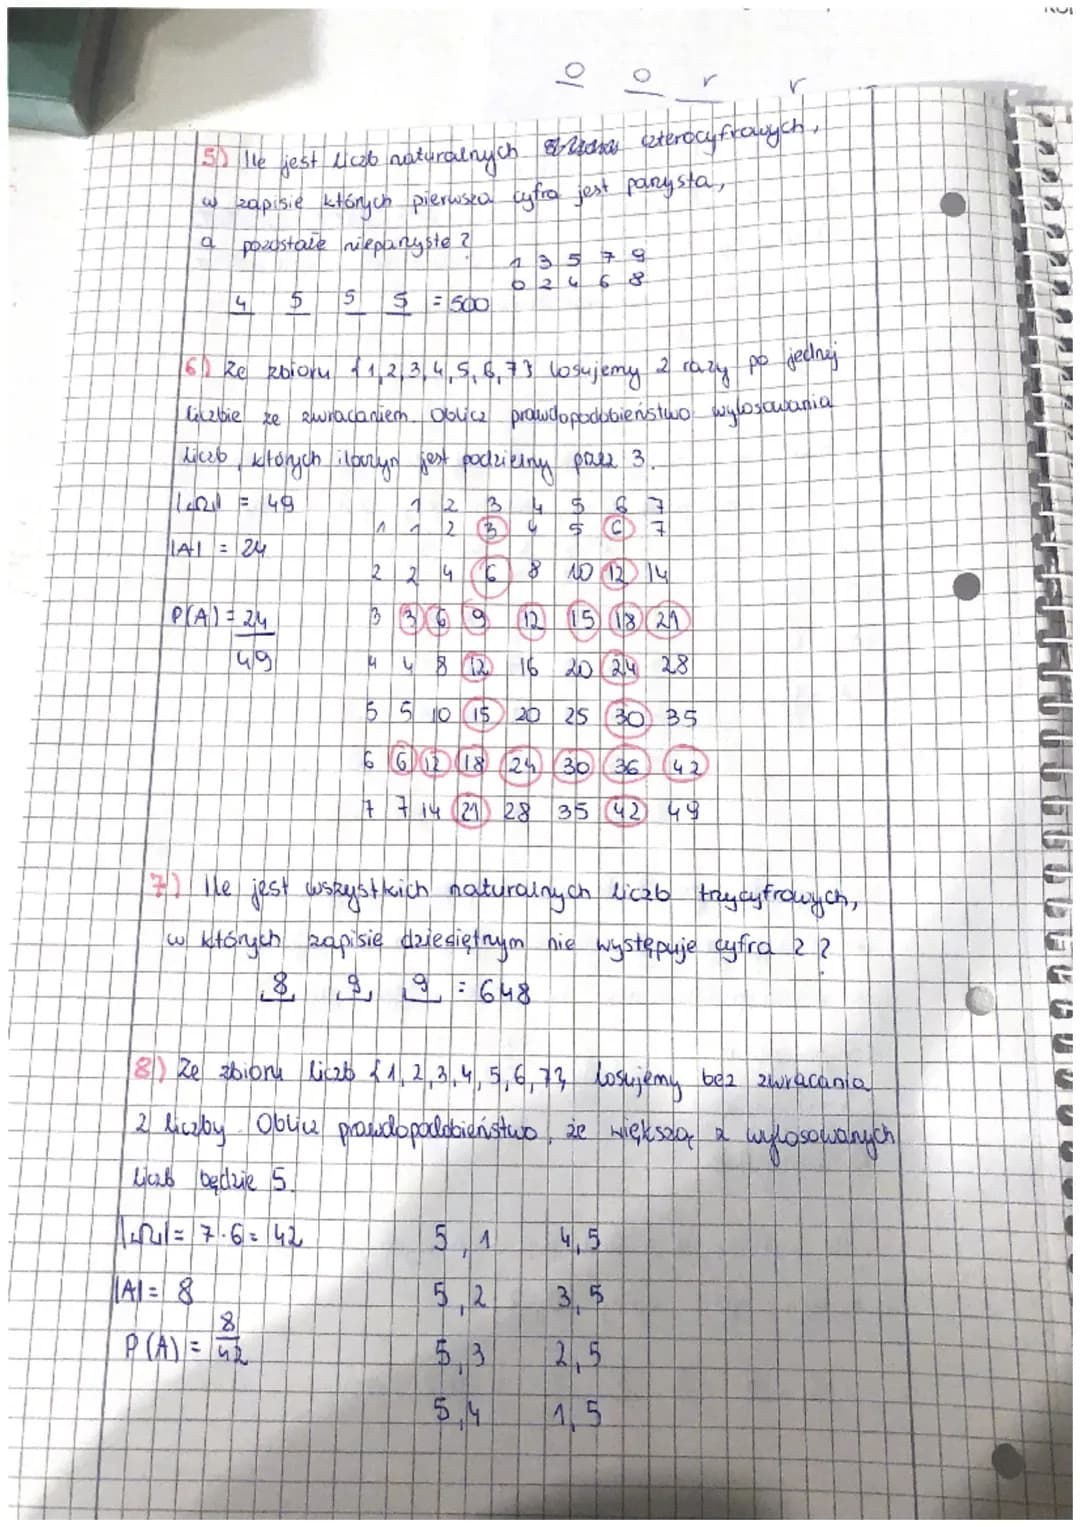 o o r r
5) Ile jest liczb naturalnych czterocyfrowych,
w zapisie których pierwsza cyfra jest parzysta,
a pozostałe nieparzyste?
1 3 5 7 9
0 2 4 6 8
4 5 5 5 = 500
6) Ze zbioru {1,2,3,4,5,6,7} losujemy 2 razy po jednej
liczbie ze zwracaniem. Oblicz prawdopodobieństwo wylosowania
liczb, których iloczyn jest podzielny przez 3.
|Ω| = 49
1 2 3 4 5 6 7
1 1 2 3 4 5 6 7
|A| = 24
2 2 4 6 8 10 12 14
P(A) = 24/49
3 3 6 9 12 15 18 21
4 4 8 12 16 20 24 28
5 5 10 15 20 25 30 35
6 6 12 18 24 30 36 42
7 7 14 21 28 35 42 49
7) Ile jest wszystkich naturalnych liczb trzycyfrowych,
w których zapisie dziesiętnym nie występuje cyfra 2?
8 9 9 = 648
8) Ze zbioru liczb {1,2,3,4,5,6,7} losujemy bez zwracania
2 liczby. Oblicz prawdopodobieństwo, że większą z wylosowanych
liczb będzie 5.
|Ω| = 7·6 = 42
5,1 4,5
|A| = 8
5,2 3,5
P(A) = 8/42
5,3 2,5
5,4 1,5